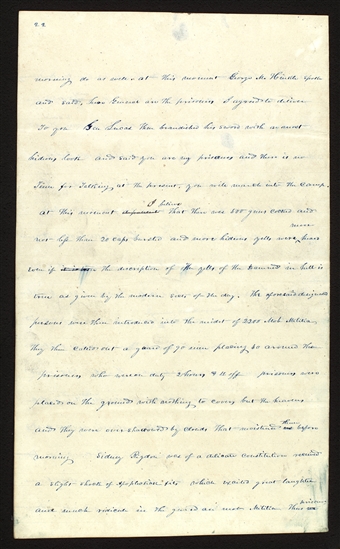 22
morning do as well at this moment George M. Hinkle spoke
and said, here General are the prisoners I agreed to deliver
to you Gen Lucas then brandished his sword with a most
hideous look and said you are my prisoners and there is no
Time for Talking, at the present, you will march into the Camp.
I believe
at this moment that there was 500 guns cocked and
never
not less than 20 caps bursted and more hideous yells were hear
even if the discreption of the yells of the damned in hell is
true as given by the modern of the day. The aforesaid
persons were then introduced into the midst of 2200 Mob Militia
they then called out a guard of 90 men placing 30 around the
prisoners who were on duty 2 hours & 4 off prisoners were
placed on the ground with nothing to cover but the heavens
them
and they were over shadowed by clouds that moistened before
morning Sidney Rigdon was of a delicate constitution received
a slight shock of Apoplectic fits which excited great laughter
and much ridicule in the guard and mob Militia Thus
prisoners